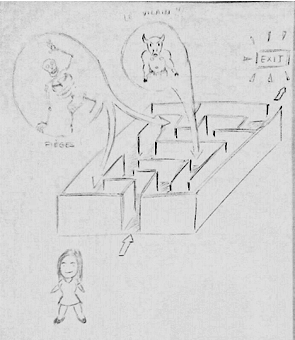 LE VILAIN "
EXIT
PIÈGES